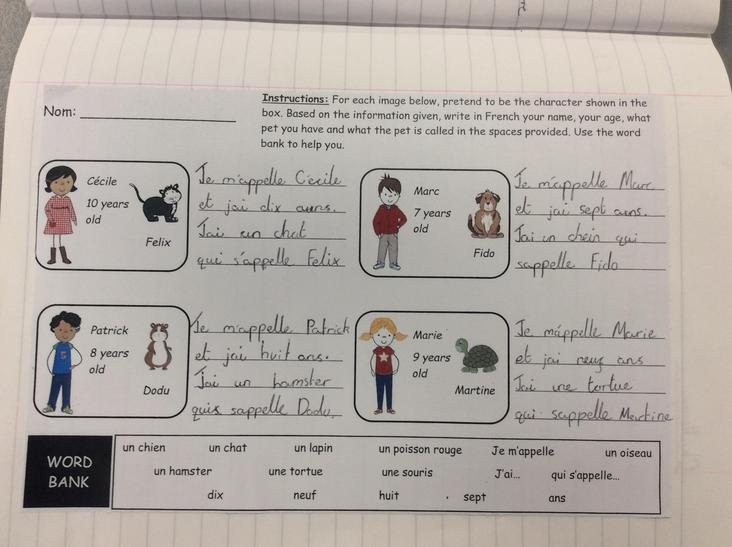 Nom:
Instructions: For each image below, pretend to be the character shown in the
box. Based on the information given, write in French your name, your age, what
pet you have and what the pet is called in the spaces provided. Use the word
bank to help you.
Cécile
10 years
old
Felix
Je m'appelle Cécile
et jai dix auns.
Jai un chat
qui s'appelle Felix
Marc
7 years
old
Fido
Je m'appelle Marc
et jai sept auns.
Jai un chein qui
sappelle Fido
Patrick
8 years
old
Dodu
Je m'appelle Patrick
et jai huit ans.
Jai un hamster
quis sappelle Dodu.
Marie
9 years
old
Martine
Je m'appelle Marie
et jai neuf ans
Jai une tortue
qui sappelle Martine
WORD
BANK
un chien un chat un lapin un poisson rouge Je m'appelle un oiseau
un hamster une tortue une souris J'ai... qui s'appelle...
dix neuf huit sept ans